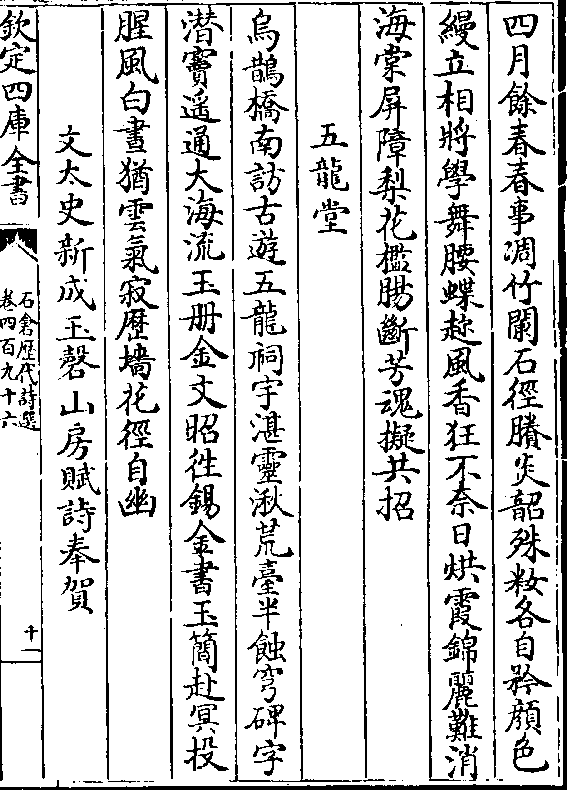 四月餘春春事凋竹闌石徑賸炎韶殊粧各自矜顔色
縵立相將學舞腰蝶趂風香狂不奈日烘霞錦麗難消
海棠屏障梨花檻腸斷芳魂擬共招
五龍堂
烏鵲橋南訪古遊五龍祠宇湛靈湫荒臺半蝕穹碑字
潛竇遥通大海流玉册金文昭徃錫金書玉簡赴冥投
腥風白晝猶雲氣寂歴墻花徑自幽
文太史新成玉磬山房賦詩奉賀
欽定四庫全書
石倉歴代詩選
卷四百九十六
十一